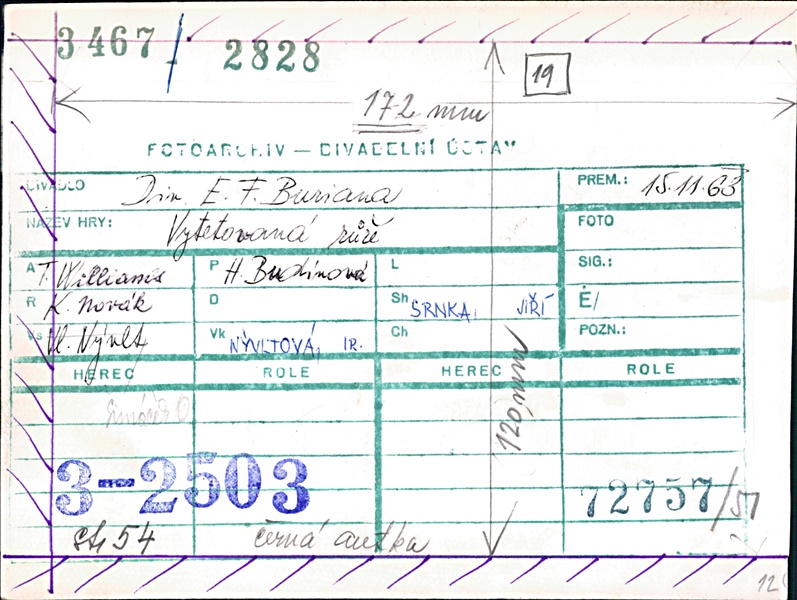 3467/ 2828
19
172 mm
FOTOARCHIV — DIVADELNÍ ÚSTAV
DIVADLO Div. E. F. Buriana PREM.: 15.11.63
NÁZEV HRY: Vytetovaná růže FOTO
A T. Williams P H. Budínová L SIG.:
R K. Novák D Sh SRNKA, JIŘÍ Ė/
Vs Vl. Nývlt Vk NÝVLTOVÁ, IR. Ch POZN.:
HEREC ROLE HEREC ROLE
120 mm
3-2503 72757/51
54 černá
12